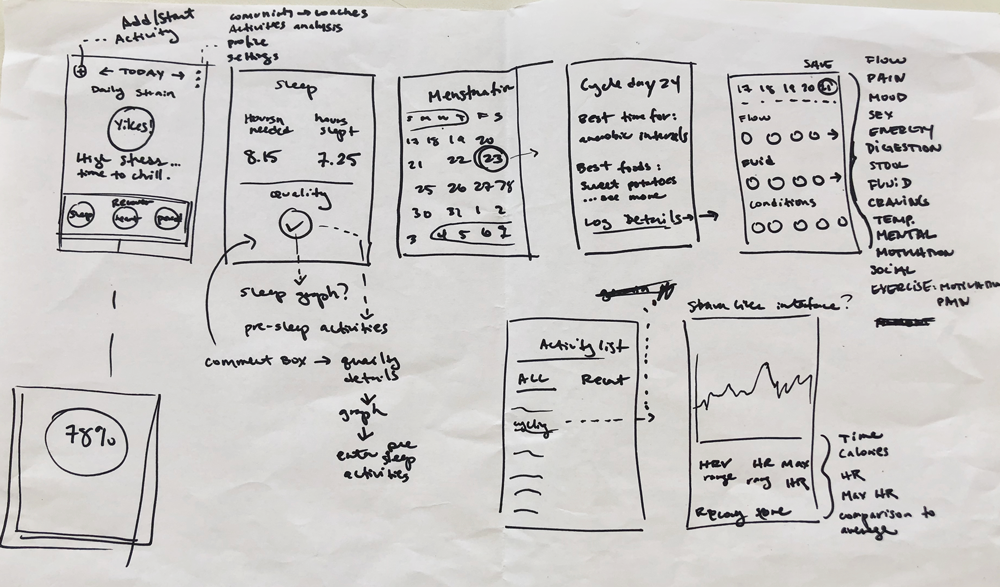 Add/Start
Activity
community → coaches
Activities analysis
profile
settings
← TODAY →
Daily Strain
Yikes!
High stress...
time to chill.
Recover
sleep
heart
78%
Sleep
Hours
needed
hours
slept
8.15
7.25
Quality
sleep graph?
pre-sleep activities
comment Box → quality
details
graph
enter pre
sleep
activities
Menstruation
S M W T F S
17 18 19 20
21 22 23
25 26 27 28
30 31 1 2
3 4 5 6 7
Cycle day 24
Best time for:
anaerobic intervals
Best foods:
sweet potatoes
... see more
Log Details →
SAVE
17 18 19 20 21
Flow
Fluid
conditions
FLOW
PAIN
MOOD
SEX
ENERGY
DIGESTION
STOOL
FLUID
CRAVINGS
TEMP.
MENTAL
MOTIVATION
SOCIAL
EXERCISE: MOTIVATION
PAIN
Activity list
ALL
Recent
cycling
Strava like interface?
HRV
range
HR
rang
Max
HR
Recovery score
Time
Calories
HR
Max HR
comparison to
average